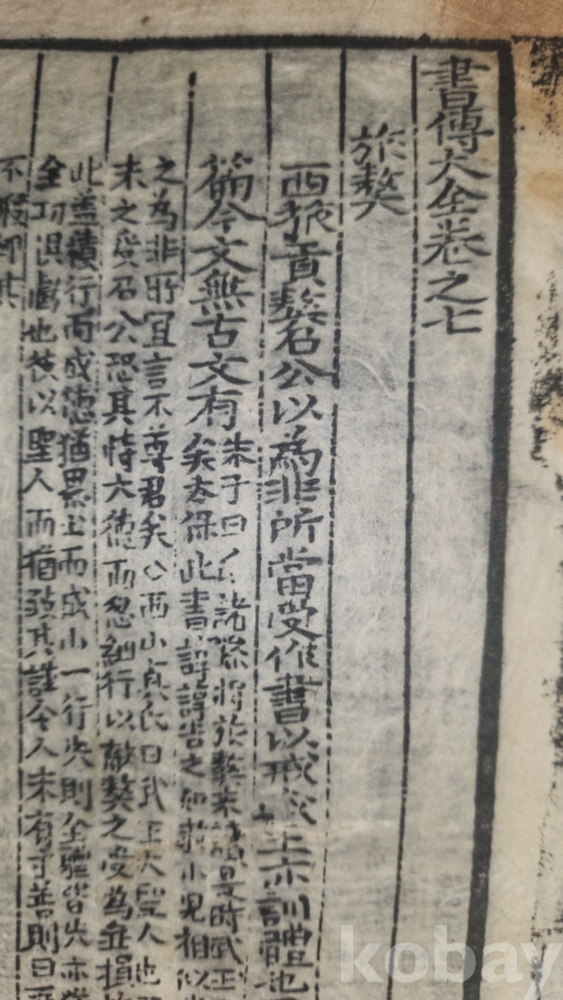 書傳大全卷之七
旅獒
西旅貢獒召公以爲非所當受作書以戒武王亦訓體也
篇今文無古文有
朱子曰 諸 將旅獒來 是時武王
矣太保此書諄諄告之如敎小兒相似
之爲非所宜言不尊君矣 西山眞氏曰武王大聖人也
未之受召公恐其恃大德而忽細行以 獒之受爲無損
此蓋積行而成德猶累土而成山一行失則全體皆失亦
全功俱虧也夫以聖人而猶致其謹今人未有寸善則曰
不暇卹其
kobay